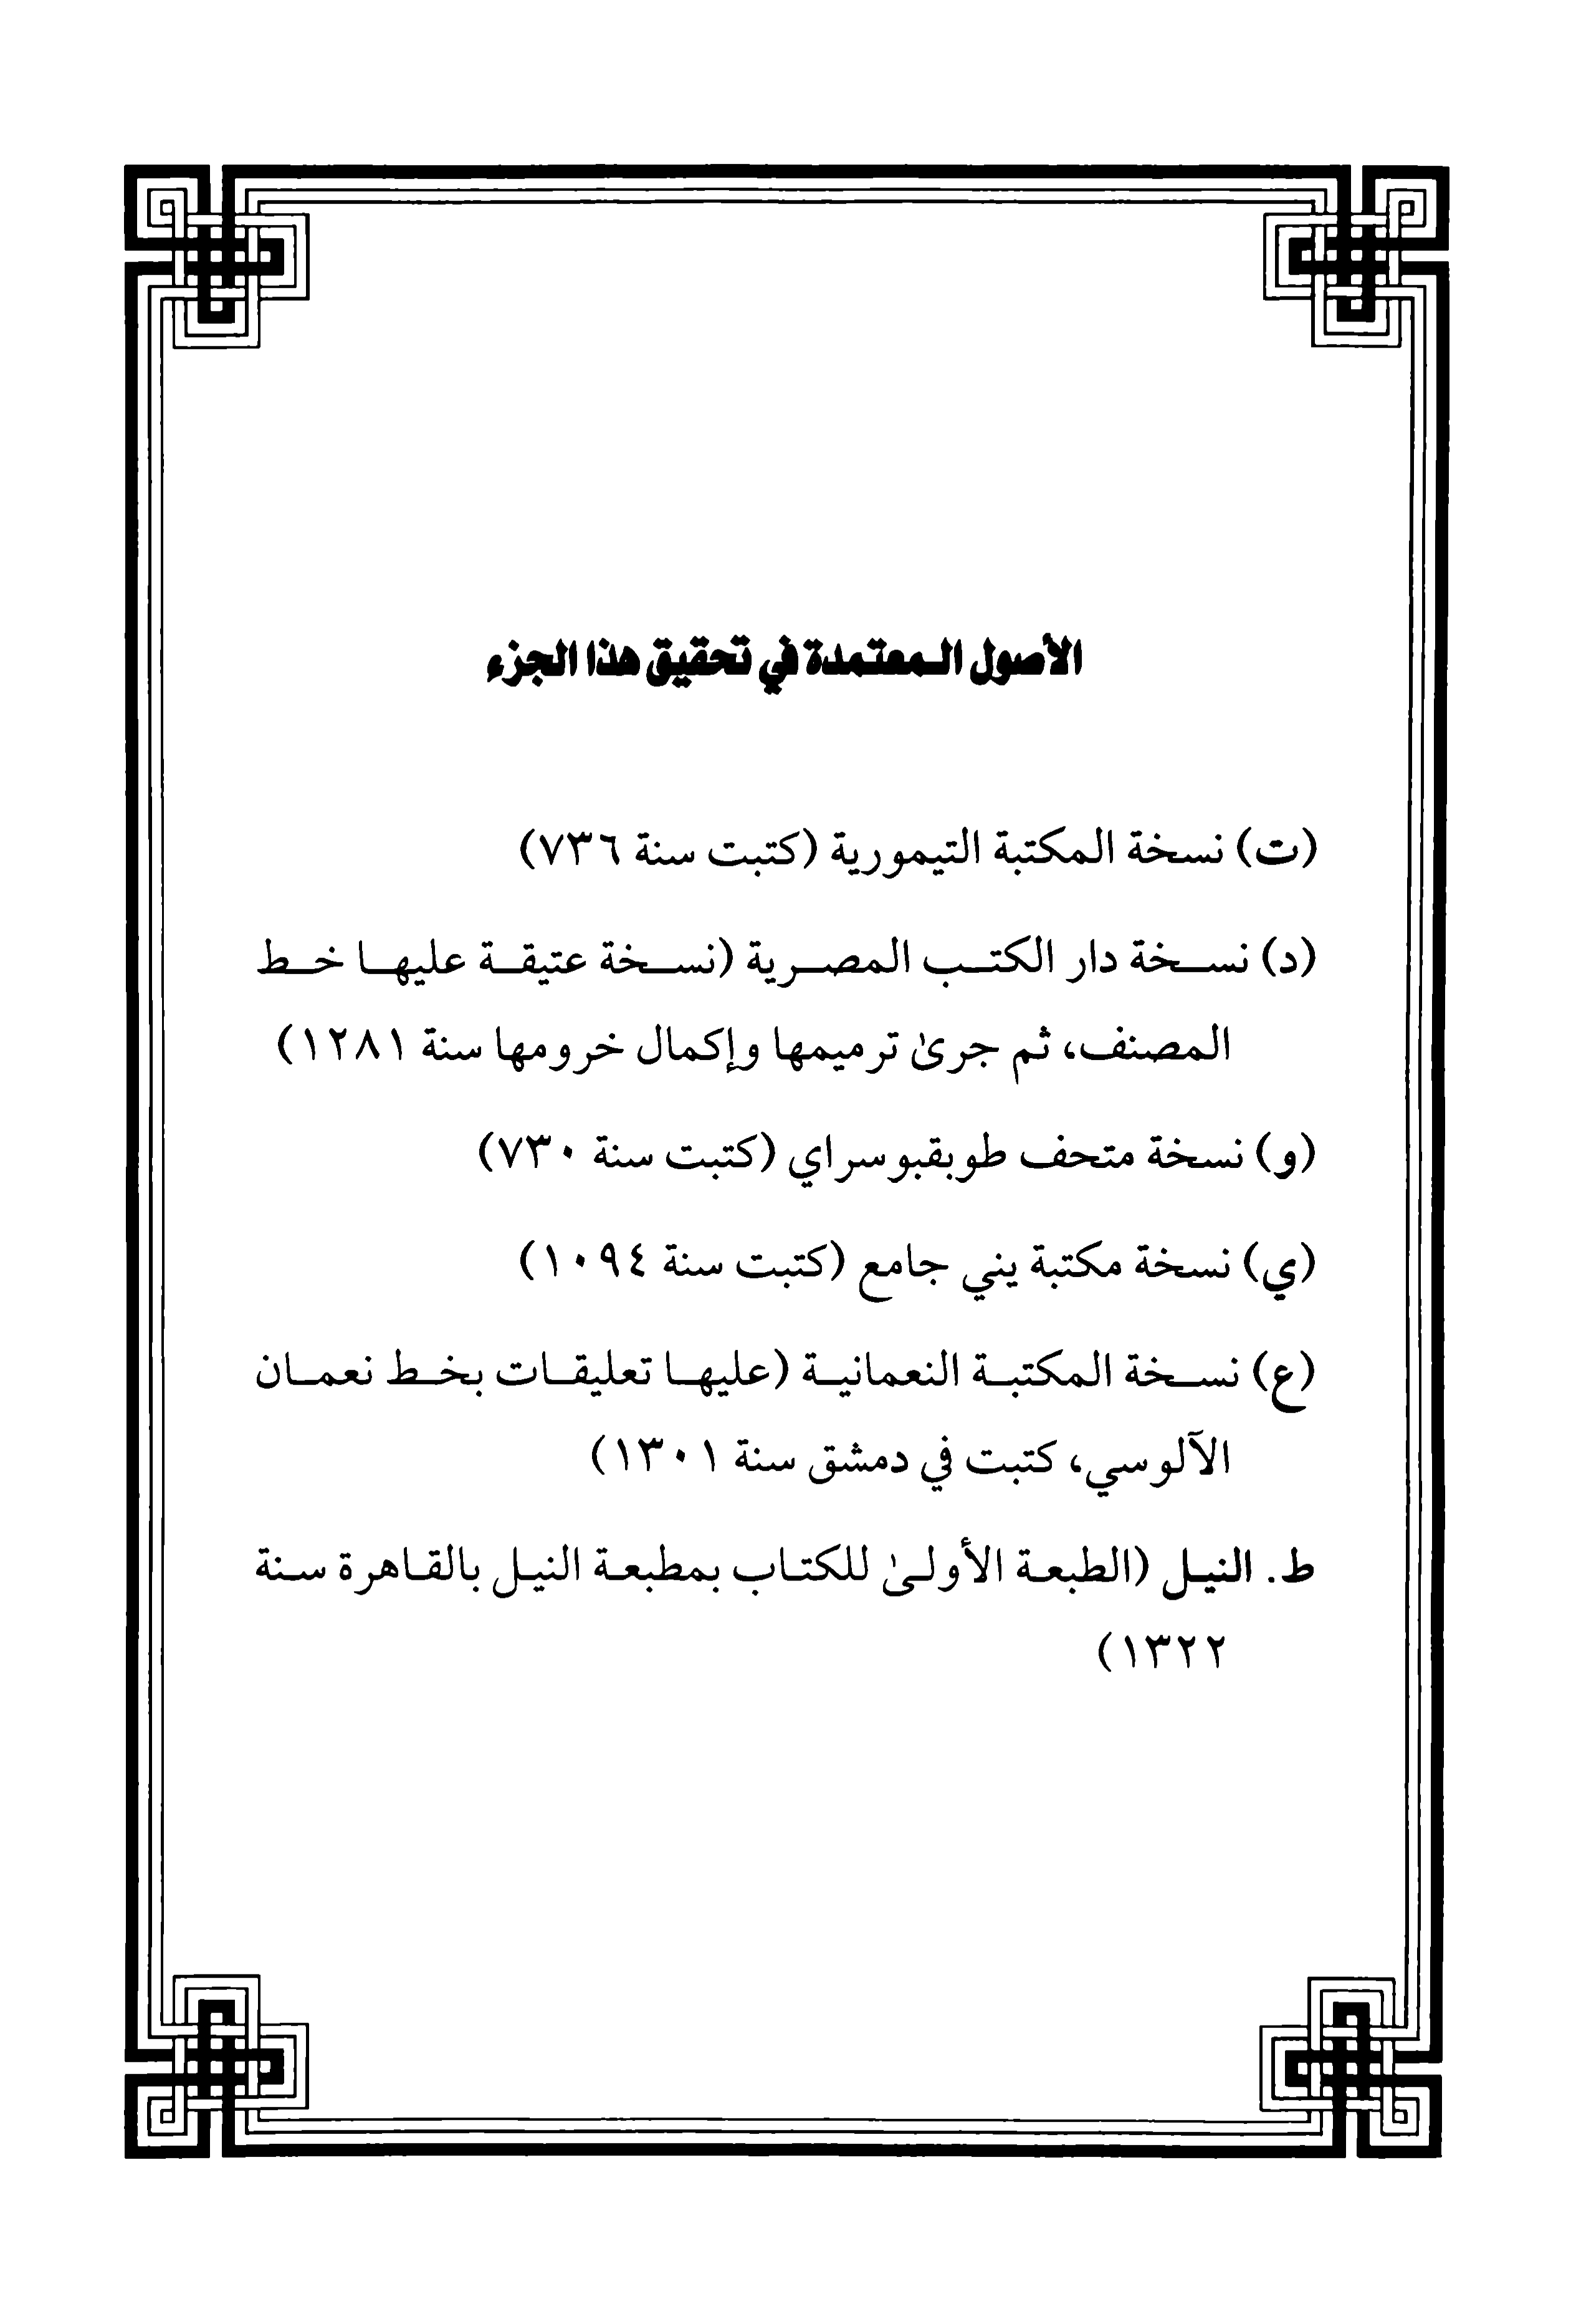 الأصول المعتمدة في تحقيق هذا الجزء
(ت) نسخة المكتبة التيمورية (كتبت سنة ٧٣٦)
(د) نسخة دار الكتب المصرية (نسخة عتيقة عليها خط
المصنف، ثم جرىٰ ترميمها وإكمال خرومها سنة ١٢٨١)
(و) نسخة متحف طوبقبوسراي (كتبت سنة ٧٣٠)
(ي) نسخة مكتبة يني جامع (كتبت سنة ١٠٩٤)
(ع) نسخة المكتبة النعمانية (عليها تعليقات بخط نعمان
الآلوسي، كتبت في دمشق سنة ١٣٠١)
ط. النيل (الطبعة الأولىٰ للكتاب بمطبعة النيل بالقاهرة سنة
١٣٢٢)